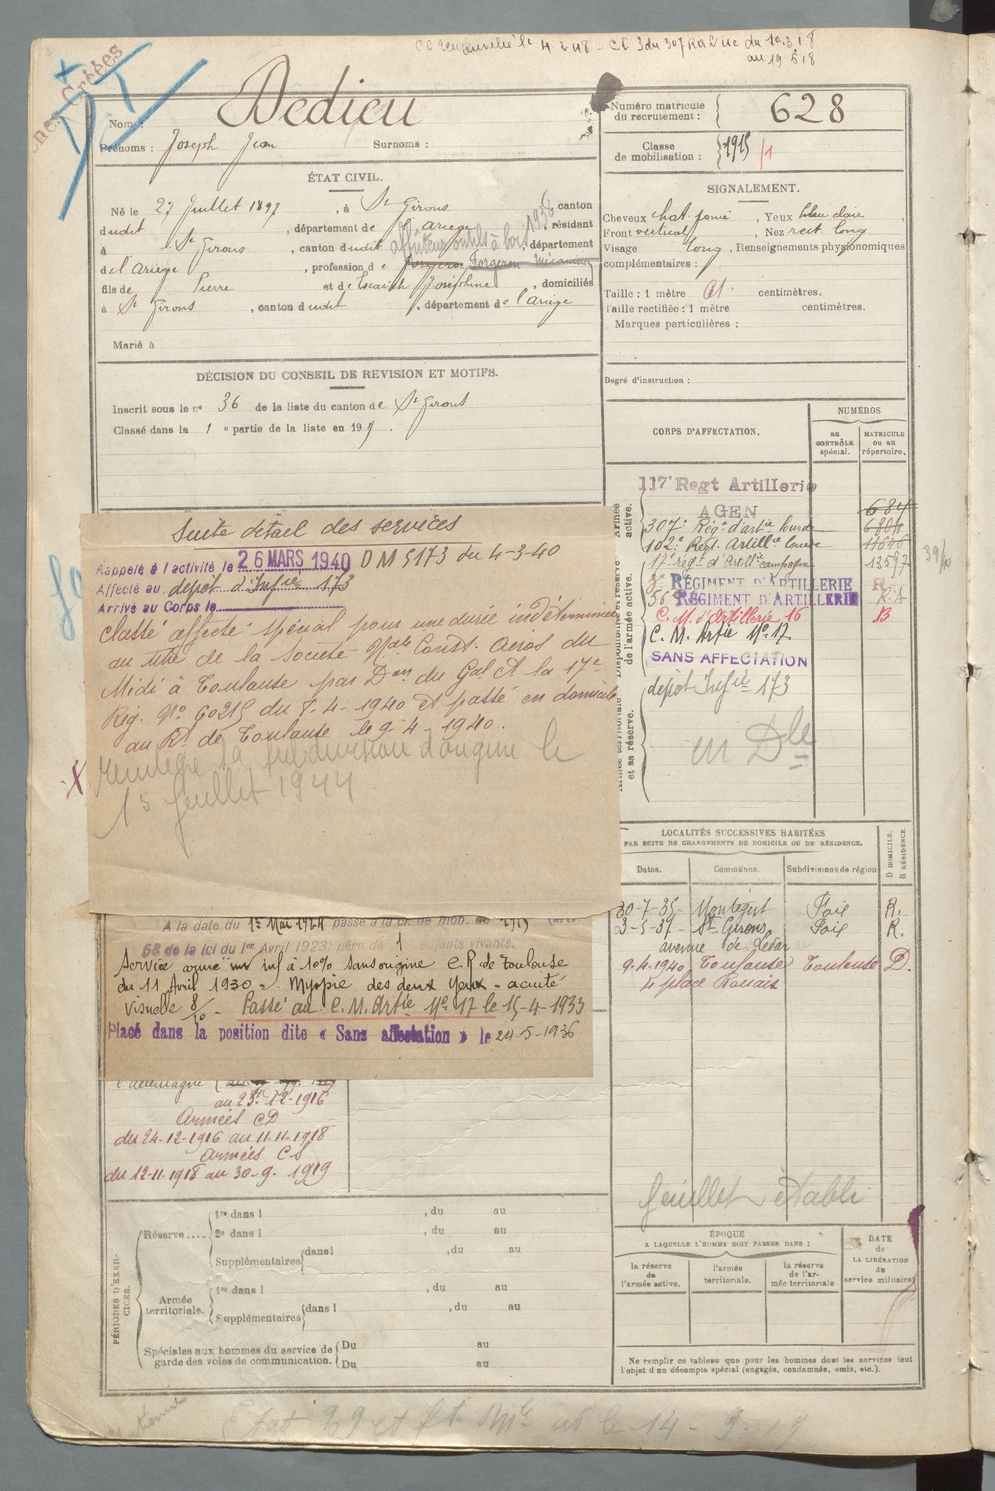 CC renouvelé le 4.2.48 - C.C 3 du 307 RAL
Nom : Dedieu
Prénoms : Joseph Jean Surnoms :
Numéro matricule du recrutement : 628
Classe de mobilisation : 1915 /1
ÉTAT CIVIL.
Né le 27 Juillet 1897, à St Girons canton
dudit, département de l'Ariège résidant
à St Girons, canton dudit département
de l'Ariège, profession de forgeron Forgeron Mécanicien
affuteur outils à bois 1938
fils de Pierre et de Joséphine, domiciliés
à St Girons, canton dudit, département de l'Ariège
Marié à
SIGNALEMENT.
Cheveux chat. foncé, Yeux bleu clair,
Front vertical, Nez rect. long
Visage long, Renseignements physionomiques
complémentaires :
Taille : 1 mètre 61 centimètres.
Taille rectifiée : 1 mètre centimètres.
Marques particulières :
Degré d'instruction :
DÉCISION DU CONSEIL DE REVISION ET MOTIFS.
Inscrit sous le n° 36 de la liste du canton de St Girons
Classé dans la 1 e partie de la liste en 191 .
CORPS D'AFFECTATION.
NUMÉROS
AU CONTRÔLE spécial.
MATRICULE ou au répertoire.
117e Regt Artillerie
AGEN
684
307e Régt d'artie lourde
102e Régt Artillie lourde
17e régt d'Artillie campagne 13597
RÉGIMENT D'ARTILLERIE
36e RÉGIMENT D'ARTILLERIE
C. M. d'Artillerie 16 B
C. M. Artie No 17
SANS AFFECTATION
depot Infie 173
un Dle
active.
de l'armée active.
et sa réserve.
Suite détail des services
Rappelé à l'activité le 26 MARS 1940 DM 5173 du 4-3-40
Affecté au depot d'Infie 173
Arrivé au Corps le
Classé affecté spécial pour une durée indéterminée
au titre de la Société Nale Const. Aéros du
Midi à Toulouse par Don du Gal Ct la 17e
Rég. No 60215 du 7-4-1940 et passé en domicile
au Rt de Toulouse le 9-4-1940.
réintègre sa subdivision d'origine le
15 juillet 1944
A la date du 1er Mai 1924 passé à la cl. de mob. de 1915
58 de la loi du 1er Avril 1923) père de 1 enfants vivants.
Service armé inf à 10% sans origine C.R de Toulouse
du 11 Avril 1930 - Myopie des deux yeux - acuité
visuelle 8/10 - Passé au C.M. Artie No 17 le 15-4-1933
Placé dans la position dite « Sans affectation » le 24-5-1936
l'Allemagne
au 23-12-1916
Armées CD
du 24-12-1916 au 11-11-1918
Armées CS
du 12-11-1918 au 30-9-1919
LOCALITÉS SUCCESSIVES HABITÉES
PAR SUITE DE CHANGEMENTS DE DOMICILE OU DE RÉSIDENCE.
Dates. Communes. Subdivisions de région
D DOMICILE. R RÉSIDENCE.
30-7-35- Montégut Foix R.
3-5-37- St Girons Foix R.
avenue de
9-4-1940 Toulouse Toulouse D.
4 place Rouaix
feuillet établi
PÉRIODES D'EXERCICES.
Réserve..... 1re dans l , du au
2e dans l , du au
Supplémentaires dans l , du au
Armée territoriale. 1re dans l , du au
Supplémentaires dans l , du au
Spéciales aux hommes du service de garde des voies de communication. Du au
Du au
ÉPOQUE
A LAQUELLE L'HOMME DOIT PASSER DANS :
la réserve de l'armée active.
l'armée territoriale.
la réserve de l'armée territoriale
DATE de LA LIBÉRATION du service militaire
Ne remplir ce tableau que pour les hommes dont les services font
l'objet d'un décompte spécial (engagés, condamnés, omis, etc.).